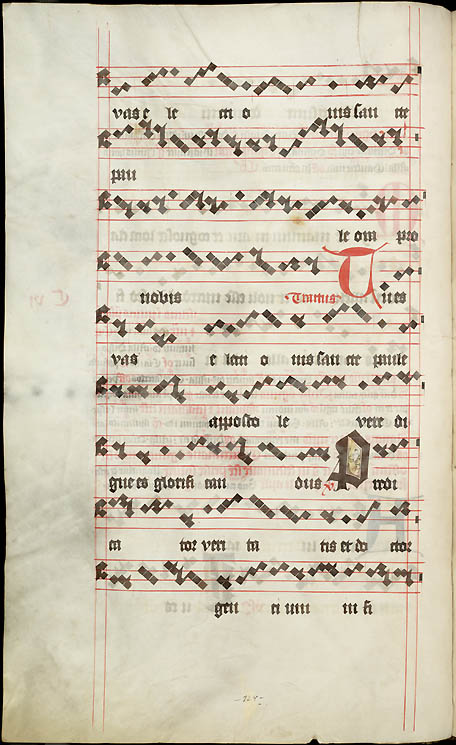 vas e le cti o nis san cte
pau
le om pro
nobis Tractus Tu es
vas e lecti o nis sancte paule
apposto le vere di
gnus es glorifi can dus V. Predi
ca tor veri ta tis et do ctor
gen ci um in fi